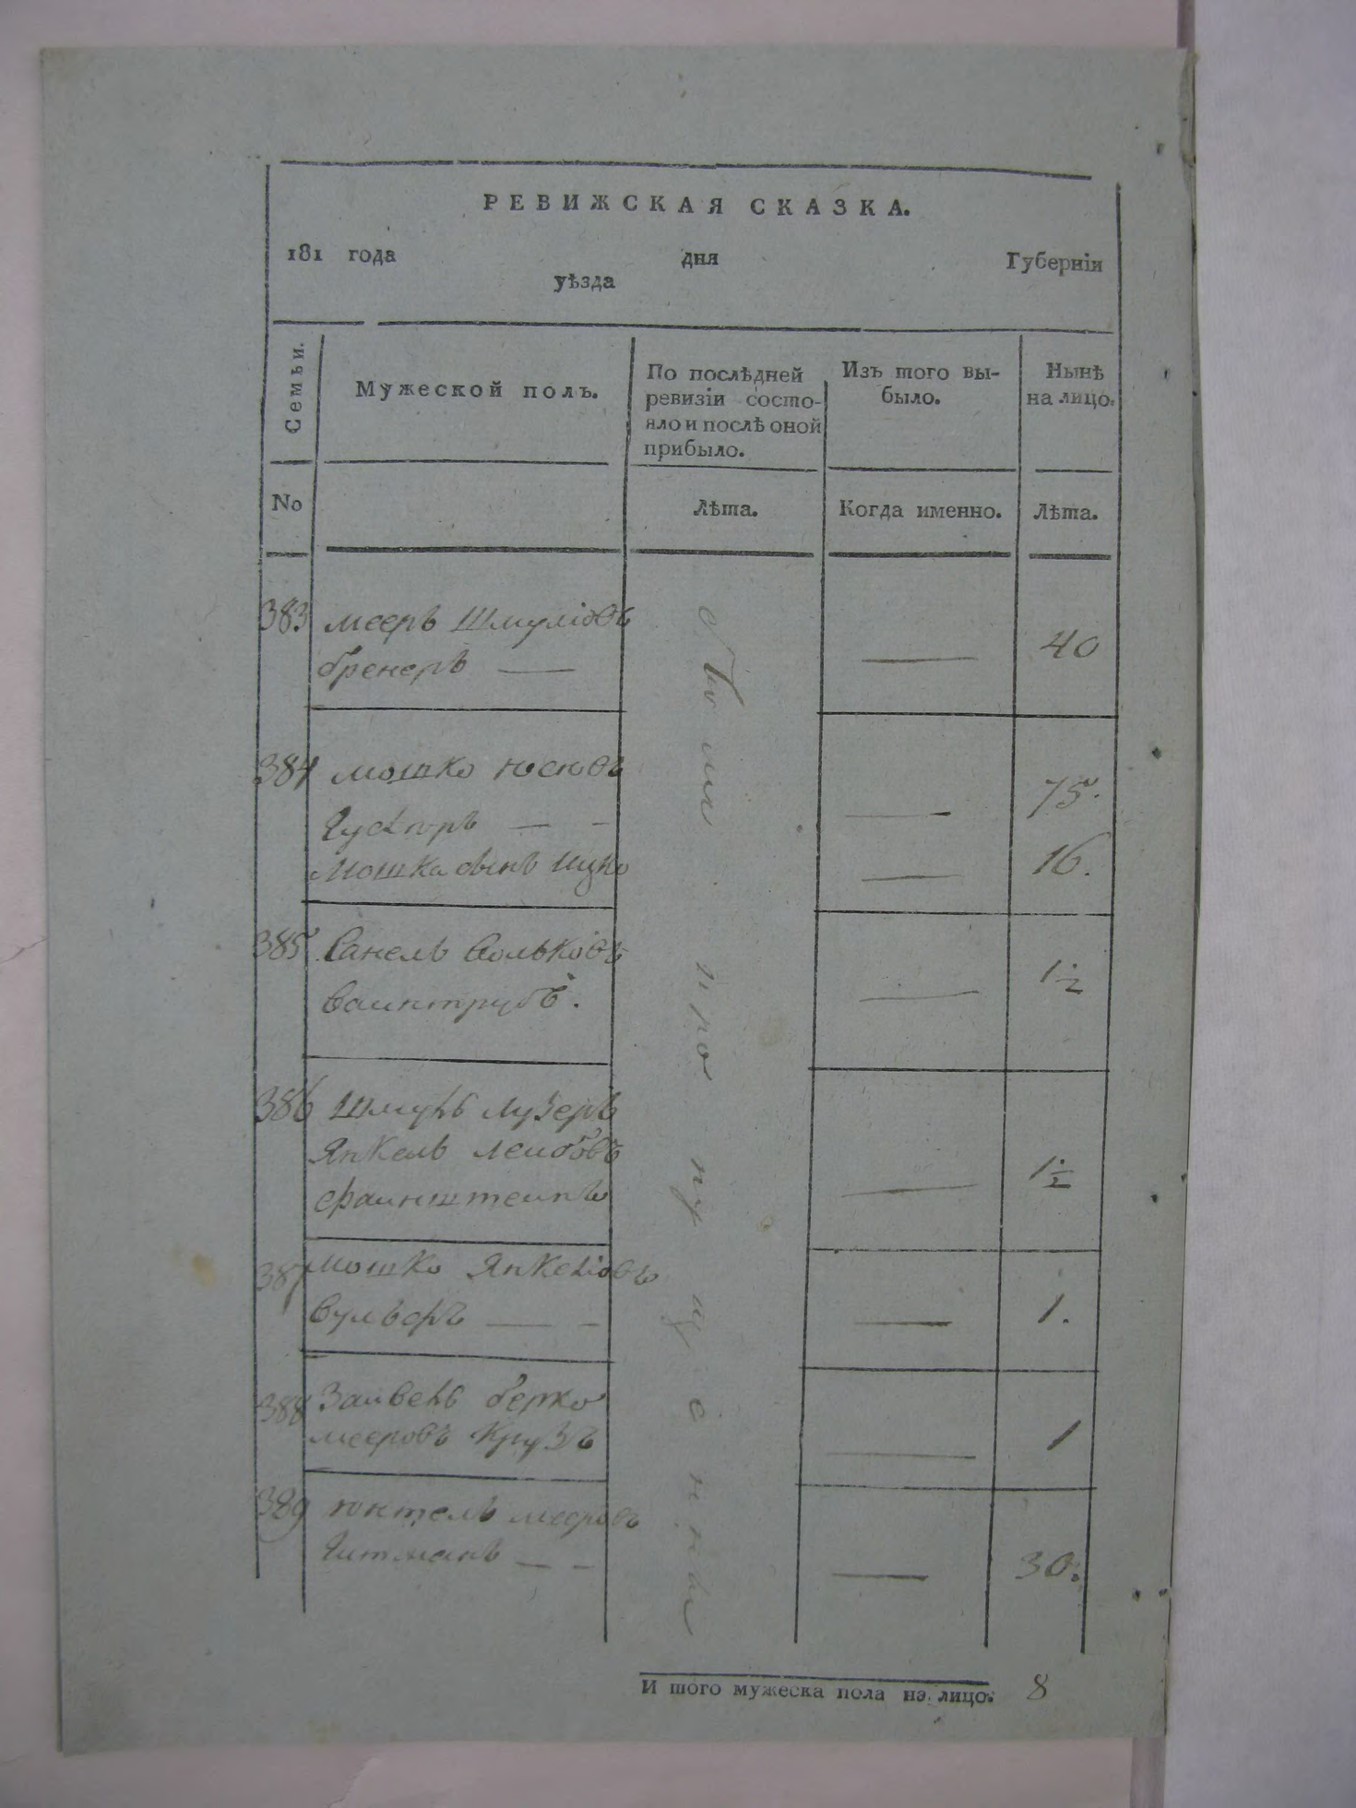 РЕВИЖСКАЯ СКАЗКА.
181 года дня Губерніи
уѣзда
Семьи.
Мужеской полъ.
По послѣдней ревизіи состо-
яло и послѣ оной
прибыло.
Изъ того вы-
было.
Нынѣ
на лицо.
No
Лѣта.
Когда именно.
Лѣта.
383 мееръ Шмуліовъ
бренеръ — — 40
384 мошко юсіовъ
— — — 75.
Мошка сынъ Ицко — 16.
385 Ванель Вольковъ
Ваинтрубъ. — 1½
386 Шмуль Лузеръ
Янкель Леибовъ
фаинштеинъ — 1½
387 мошко Янкеліовъ
Вульфъ — — — 1.
388 Заивель берко
мееровъ Крузъ — 1
389 юнтель мееровъ
Гитманъ — — — 30.
были пропущены
И того мужеска пола на лицо. 8